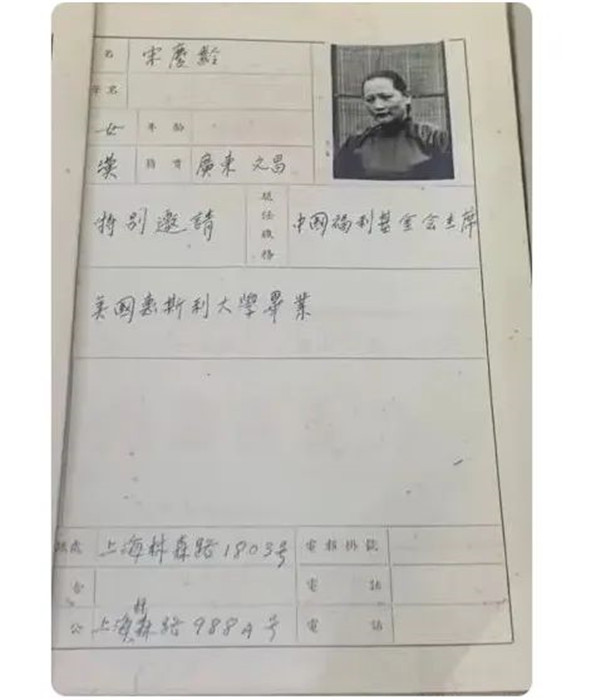 名 宋慶齡
名
女 年齡
漢 籍貫 廣東 文昌
特别邀請 現任職務 中國福利基金会主席
美國惠斯利大學畢業
處 上海林森路1803号 電報掛號
電話
公 上海林森路988A号 電話